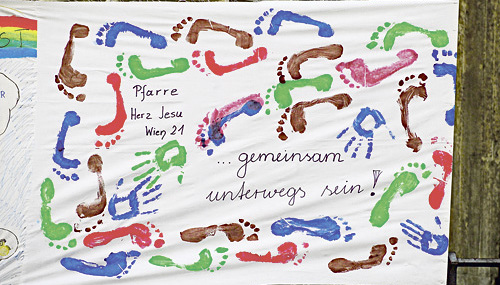 Pfarre
Herz Jesu
Wien 21
... gemeinsam
unterwegs sein!